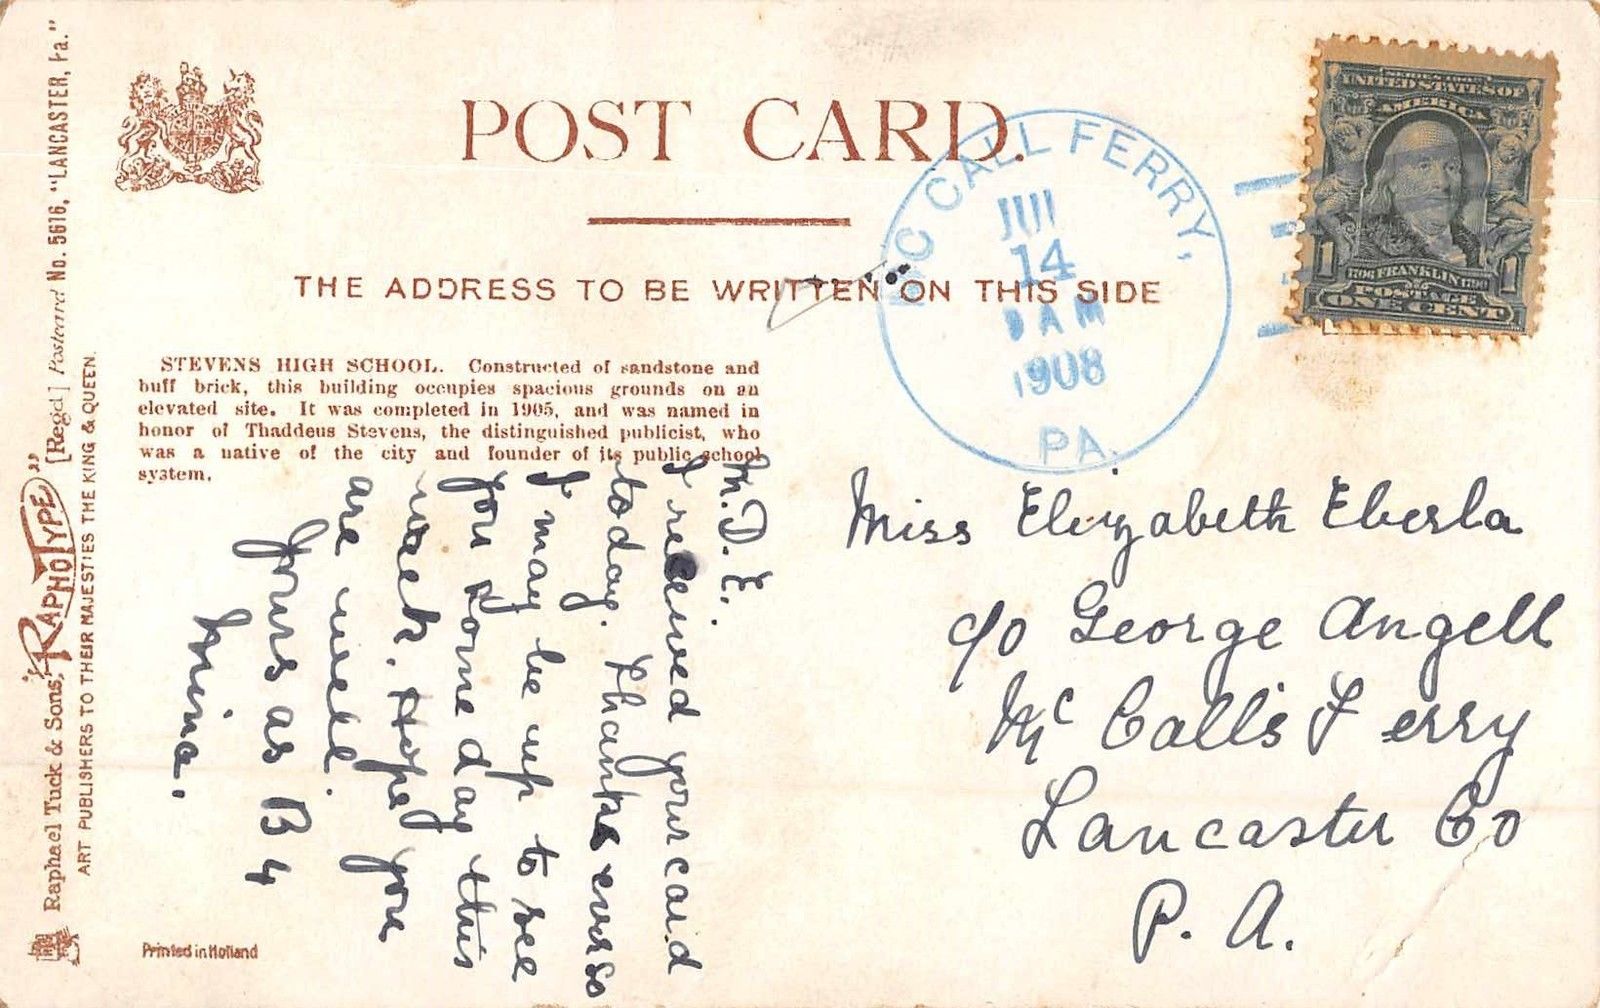 POST CARD.
THE ADDRESS TO BE WRITTEN ON THIS SIDE
MC CALL FERRY,
14
AM
1908
PA.
UNITED STATES OF
AMERICA
1 1
1706 FRANKLIN 1790
POSTAGE
ONE CENT
STEVENS HIGH SCHOOL. Constructed of sandstone and
buff brick, this building occupies spacious grounds on an
elevated site. It was completed in 1905, and was named in
honor of Thaddeus Stevens, the distinguished publicist, who
was a native of the city and founder of its public school
system.
M. D. E.
I received your card
today. Thanks ever so
I may be up to see
you some day this
week. Hope you
are well.
Yours as B 4
Mina.
Miss Elizabeth Eberla
c/o George Angell
Mc Calls Ferry
Lancaster Co
P. A.
Raphael Tuck & Sons, "RAPHOTYPE" [Regd] Postcard No. 5616, "LANCASTER, Pa."
ART PUBLISHERS TO THEIR MAJESTIES THE KING & QUEEN.
Printed in Holland